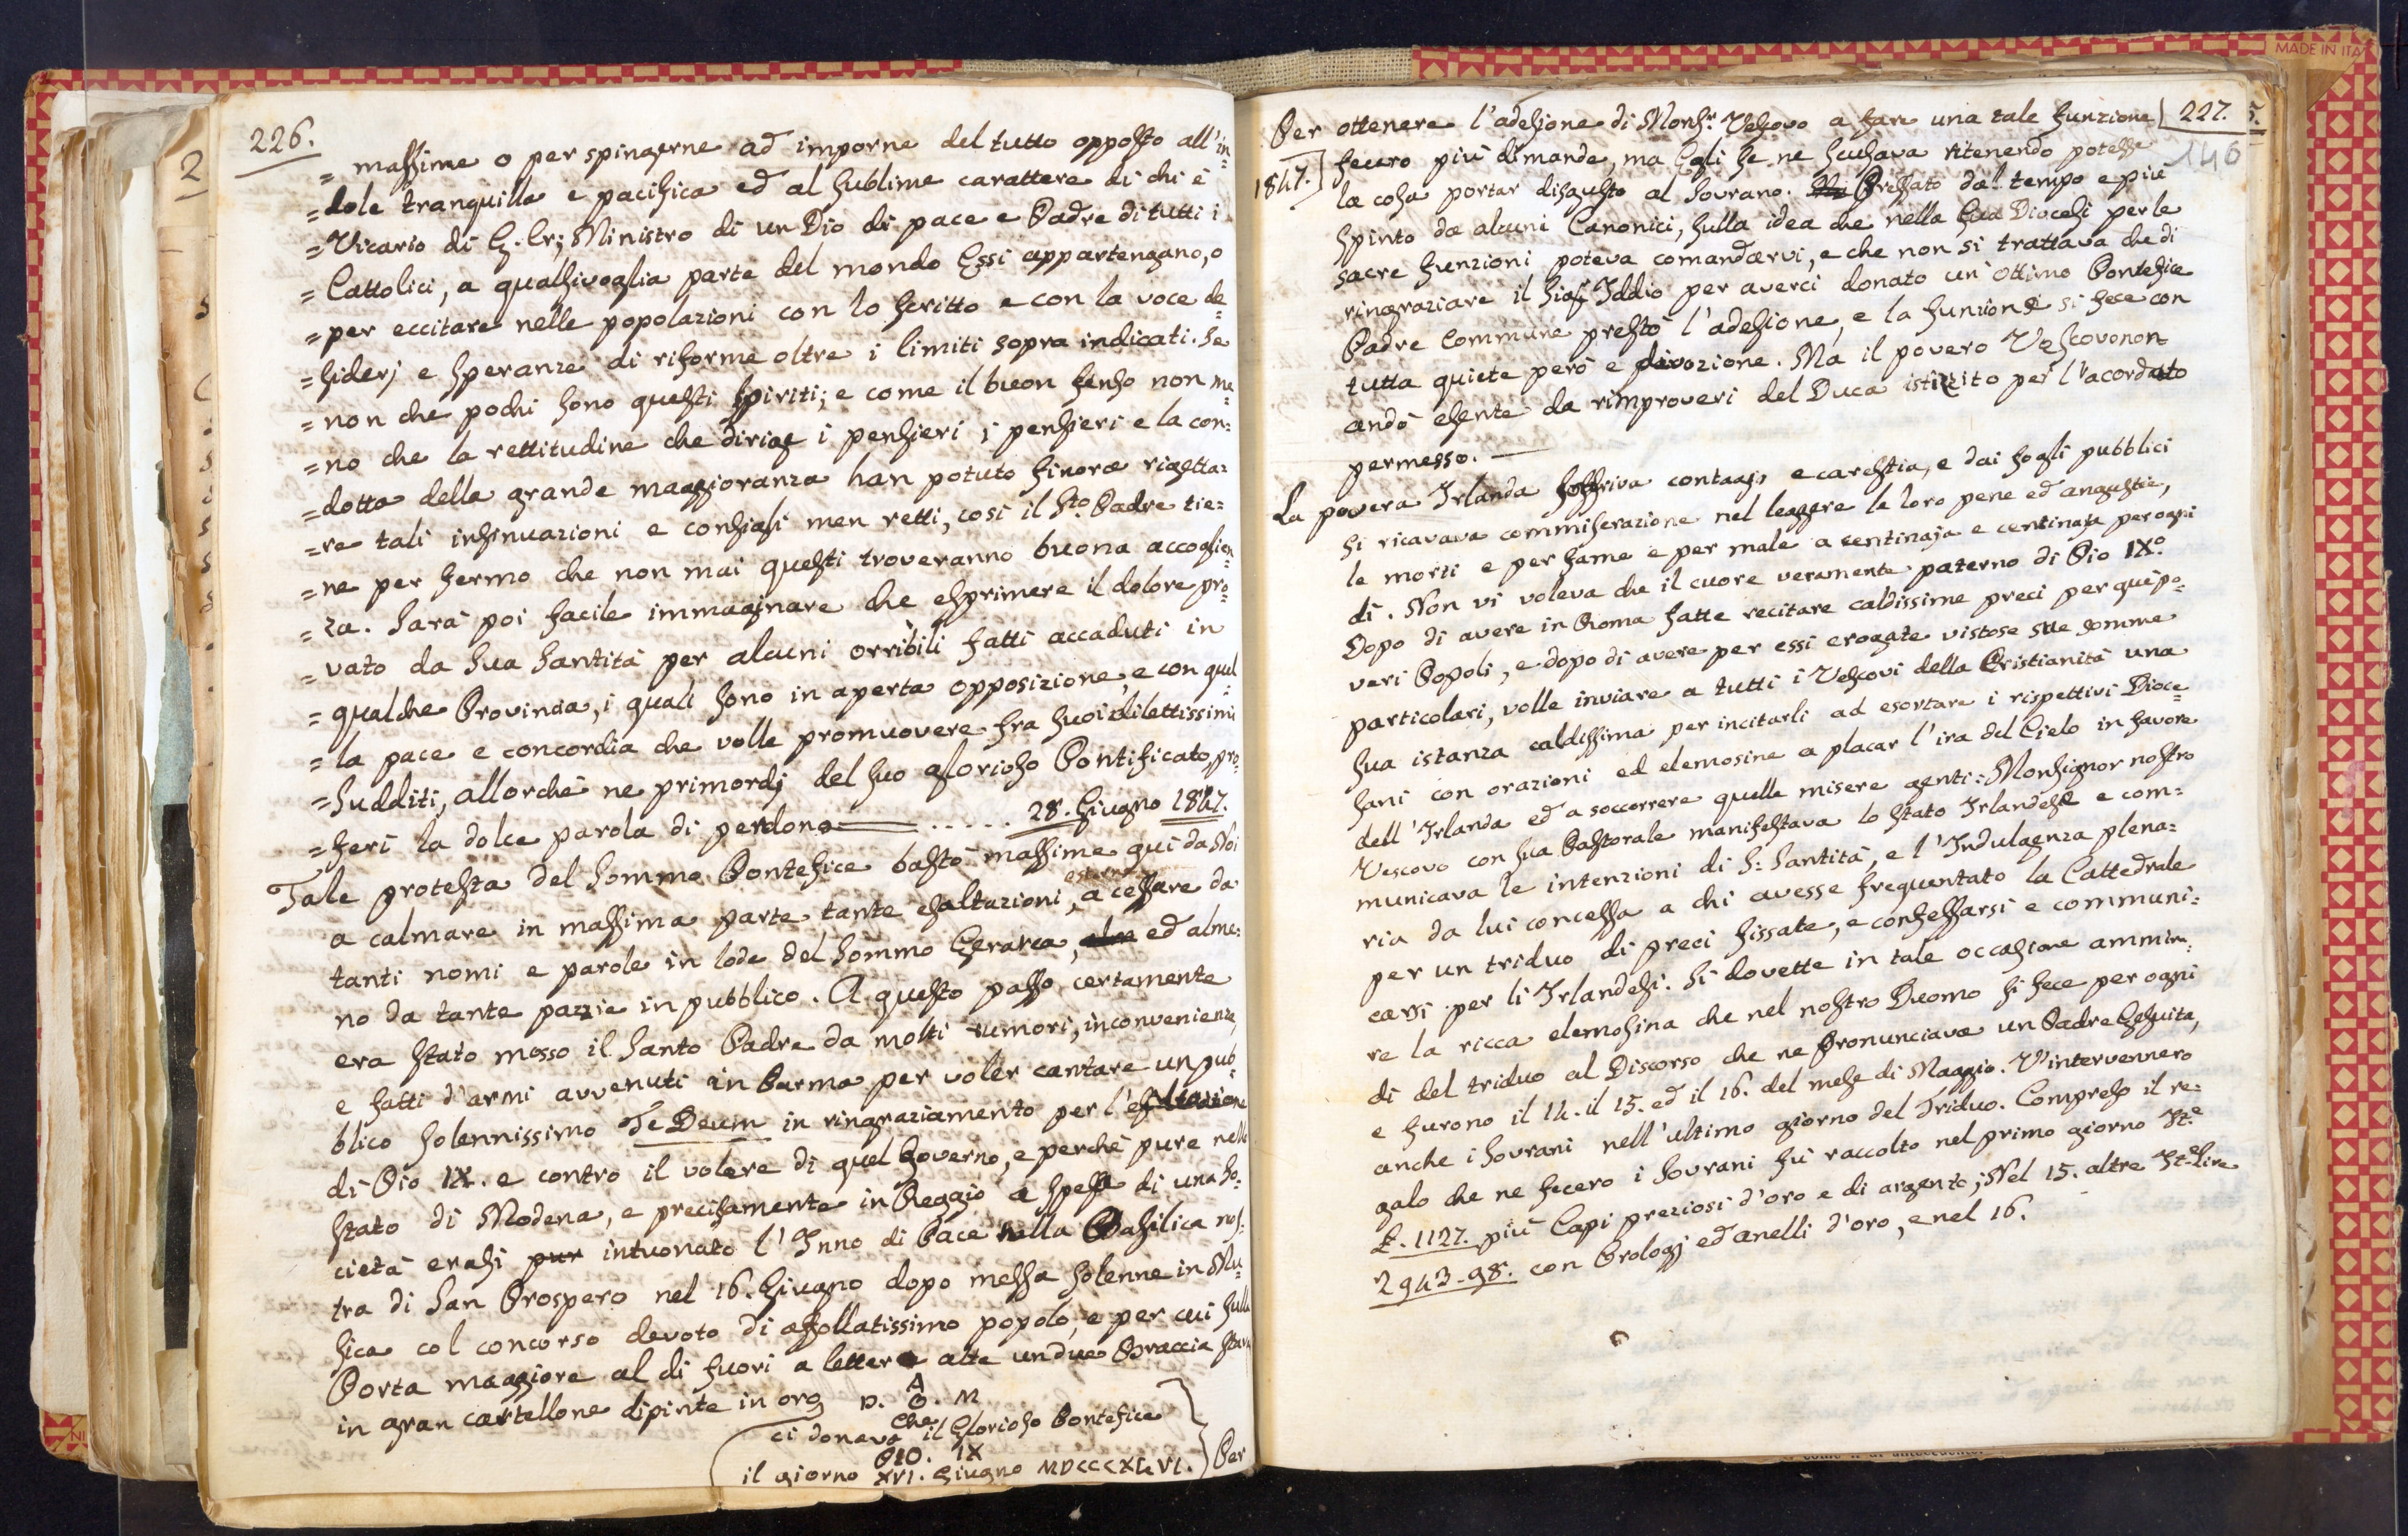 226.
= massime o per spingerne ad imporne del tutto opposto all'in=
=dole tranquilla e pacifica ed al sublime carattere di chi è
=Vicario di G. Cr; Ministro di un Dio di pace e Padre di tutti i
= Cattolici, a qualsivoglia parte del mondo Essi appartengano, o
= per eccitare nelle popolazioni con lo scritto e con la voce de=
=siderj e speranze di riforme oltre i limiti sopra indicati. Se
= non che pochi sono questi spiriti; e come il buon senso non me=
=no che la rettitudine che dirige i pensieri i pensieri e la con=
=dotta della grande maggioranza han potuto finora rigetta=
=re tali insinuazioni e consigli men retti, così il Sto. Padre tie=
=ne per fermo che non mai questi troveranno buona accoglien=
=za. Sarà poi facile immaginare che esprimere il dolore pro=
=vato da Sua Santità per alcuni orribili fatti accaduti in
= qualche Provincia, i quali sono in aperta opposizione, e con quel=
= la pace e concordia che volle promuovere fra suoi dilettissimi
=Sudditi, allorchè ne primordj del suo glorioso Pontificato, pro=
=ferì la dolce parola di perdono= ..... 28. Giugno 1847.
Tale protesta del Sommo Pontefice bastò massime quì da Noi
a calmare in massima parte tante esaltazioni esterne, a cessare da
tanti nomi e parole in lode del Sommo Gerarca, alme ed alme=
no da tante pazzie in pubblico. A questo passo certamente
era stato mosso il Santo Padre da molti rumori, inconvenienze,
e fatti d'armi avvenuti in Parma per voler cantare un pub=
blico solennissimo Te Deum in ringraziamento per l'esaltazione
di Pio IX. e contro il volere di quel Governo, e perchè pure nello
Stato di Modena, e precisamente in Reggio a spese di una So=
cietà erasi pur intuonato l'Inno di Pace nella Basilica nos=
tra di San Prospero nel 16. Giugno dopo messa solenne in Mu=
sica col concorso devoto di affollatissimo popolo, e per cui sulla
Porta maggiore al di fuori a lettere alte un due Braccia stava
in gran cartellone dipinte in oro D. O. M
A
che
ci donava il Glorioso Pontefice
PIO. IX
il giorno XVI. Giugno MDCCCXLVI.
Per
227.
146
1847.
Per ottenere l'adesione di Monsr. Vescovo a fare una tale funzione
fecero più dimande, ma Egli se ne scusava ritenendo potesse
la cosa portar disgusto al Sovrano. Ma Pressato dal tempo e più
spinto da alcuni Canonici, sulla idea che nella sua Diocesi per le
sacre funzioni poteva comandarvi, e che non si trattava che di
ringraziare il Sig. Iddio per averci donato un'ottimo Pontefice
Padre Commune prestò l'adesione, e la funzione si fece con
tutta quiete però e divozione. Ma il povero Vescovo non
andò esente da rimproveri del Duca istizzito per l'acordato
permesso. —
La povera Irlanda soffriva contagj, e carestia, e dai fogli pubblici
si ricavava commiserazione nel leggere le loro pene ed angustie,
le morti e per fame e per male a centinaja e centinaja per ogni
dì. Non vi voleva che il cuore veramente paterno di Pio IX.o
Dopo di avere in Roma fatte recitare caldissime preci per que' po=
veri Popoli, e dopo di avere per essi erogate vistose sue somme
particolari, volle inviare a tutti i Vescovi della Cristianità una
sua istanza caldissima per incitarli ad esortare i rispettivi Dioce=
sani con orazioni ed elemosine a placar l'ira del Cielo in favore
dell'Irlanda ed a soccorrere quelle misere genti: Monsignor nostro
Vescovo con sua Pastorale manifestava lo stato Irlandese e com=
municava le intenzioni di S: Santità, e l'Indulgenza plena=
ria da lui concessa a chi avesse frequentato la Cattedrale
per un triduo di preci fissate, e confessarsi e communi=
carsi per li Irlandesi. Si dovette in tale occasione ammira=
re la ricca elemosina che nel nostro Duomo si fece per ogni
dì del triduo al Discorso che ne Pronunciava un Padre Gesuita,
e furono il 14. il 15. ed il 16. del mese di Maggio. V'intervennero
anche i Sovrani nell'ultimo giorno del Triduo. Compreso il re=
galo che ne fecero i Sovrani fù raccolto nel primo giorno It.e
£. 1127. più Capi preziosi d'oro e di argento; Nel 15. altre It.e Lire
2943-98. con Orologj ed anelli d'oro, e nel 16.